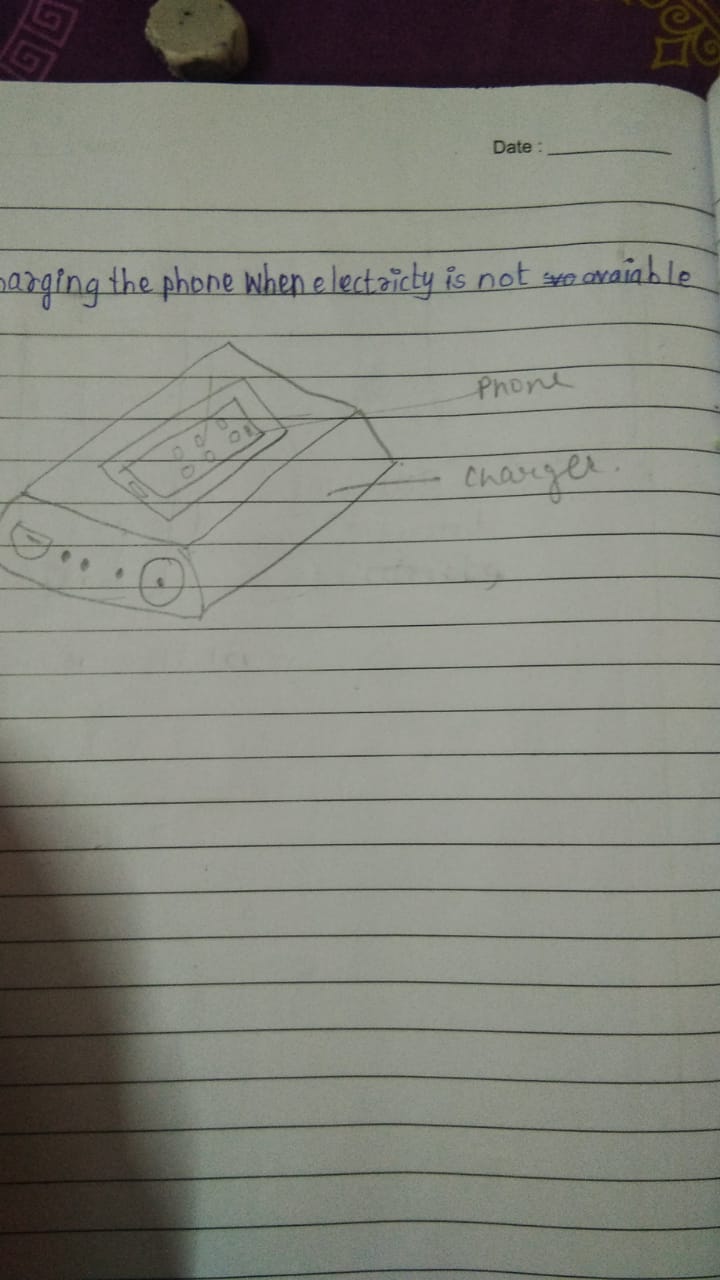 Date :
harging the phone when electricty is not avaiable
Phone
Charger.